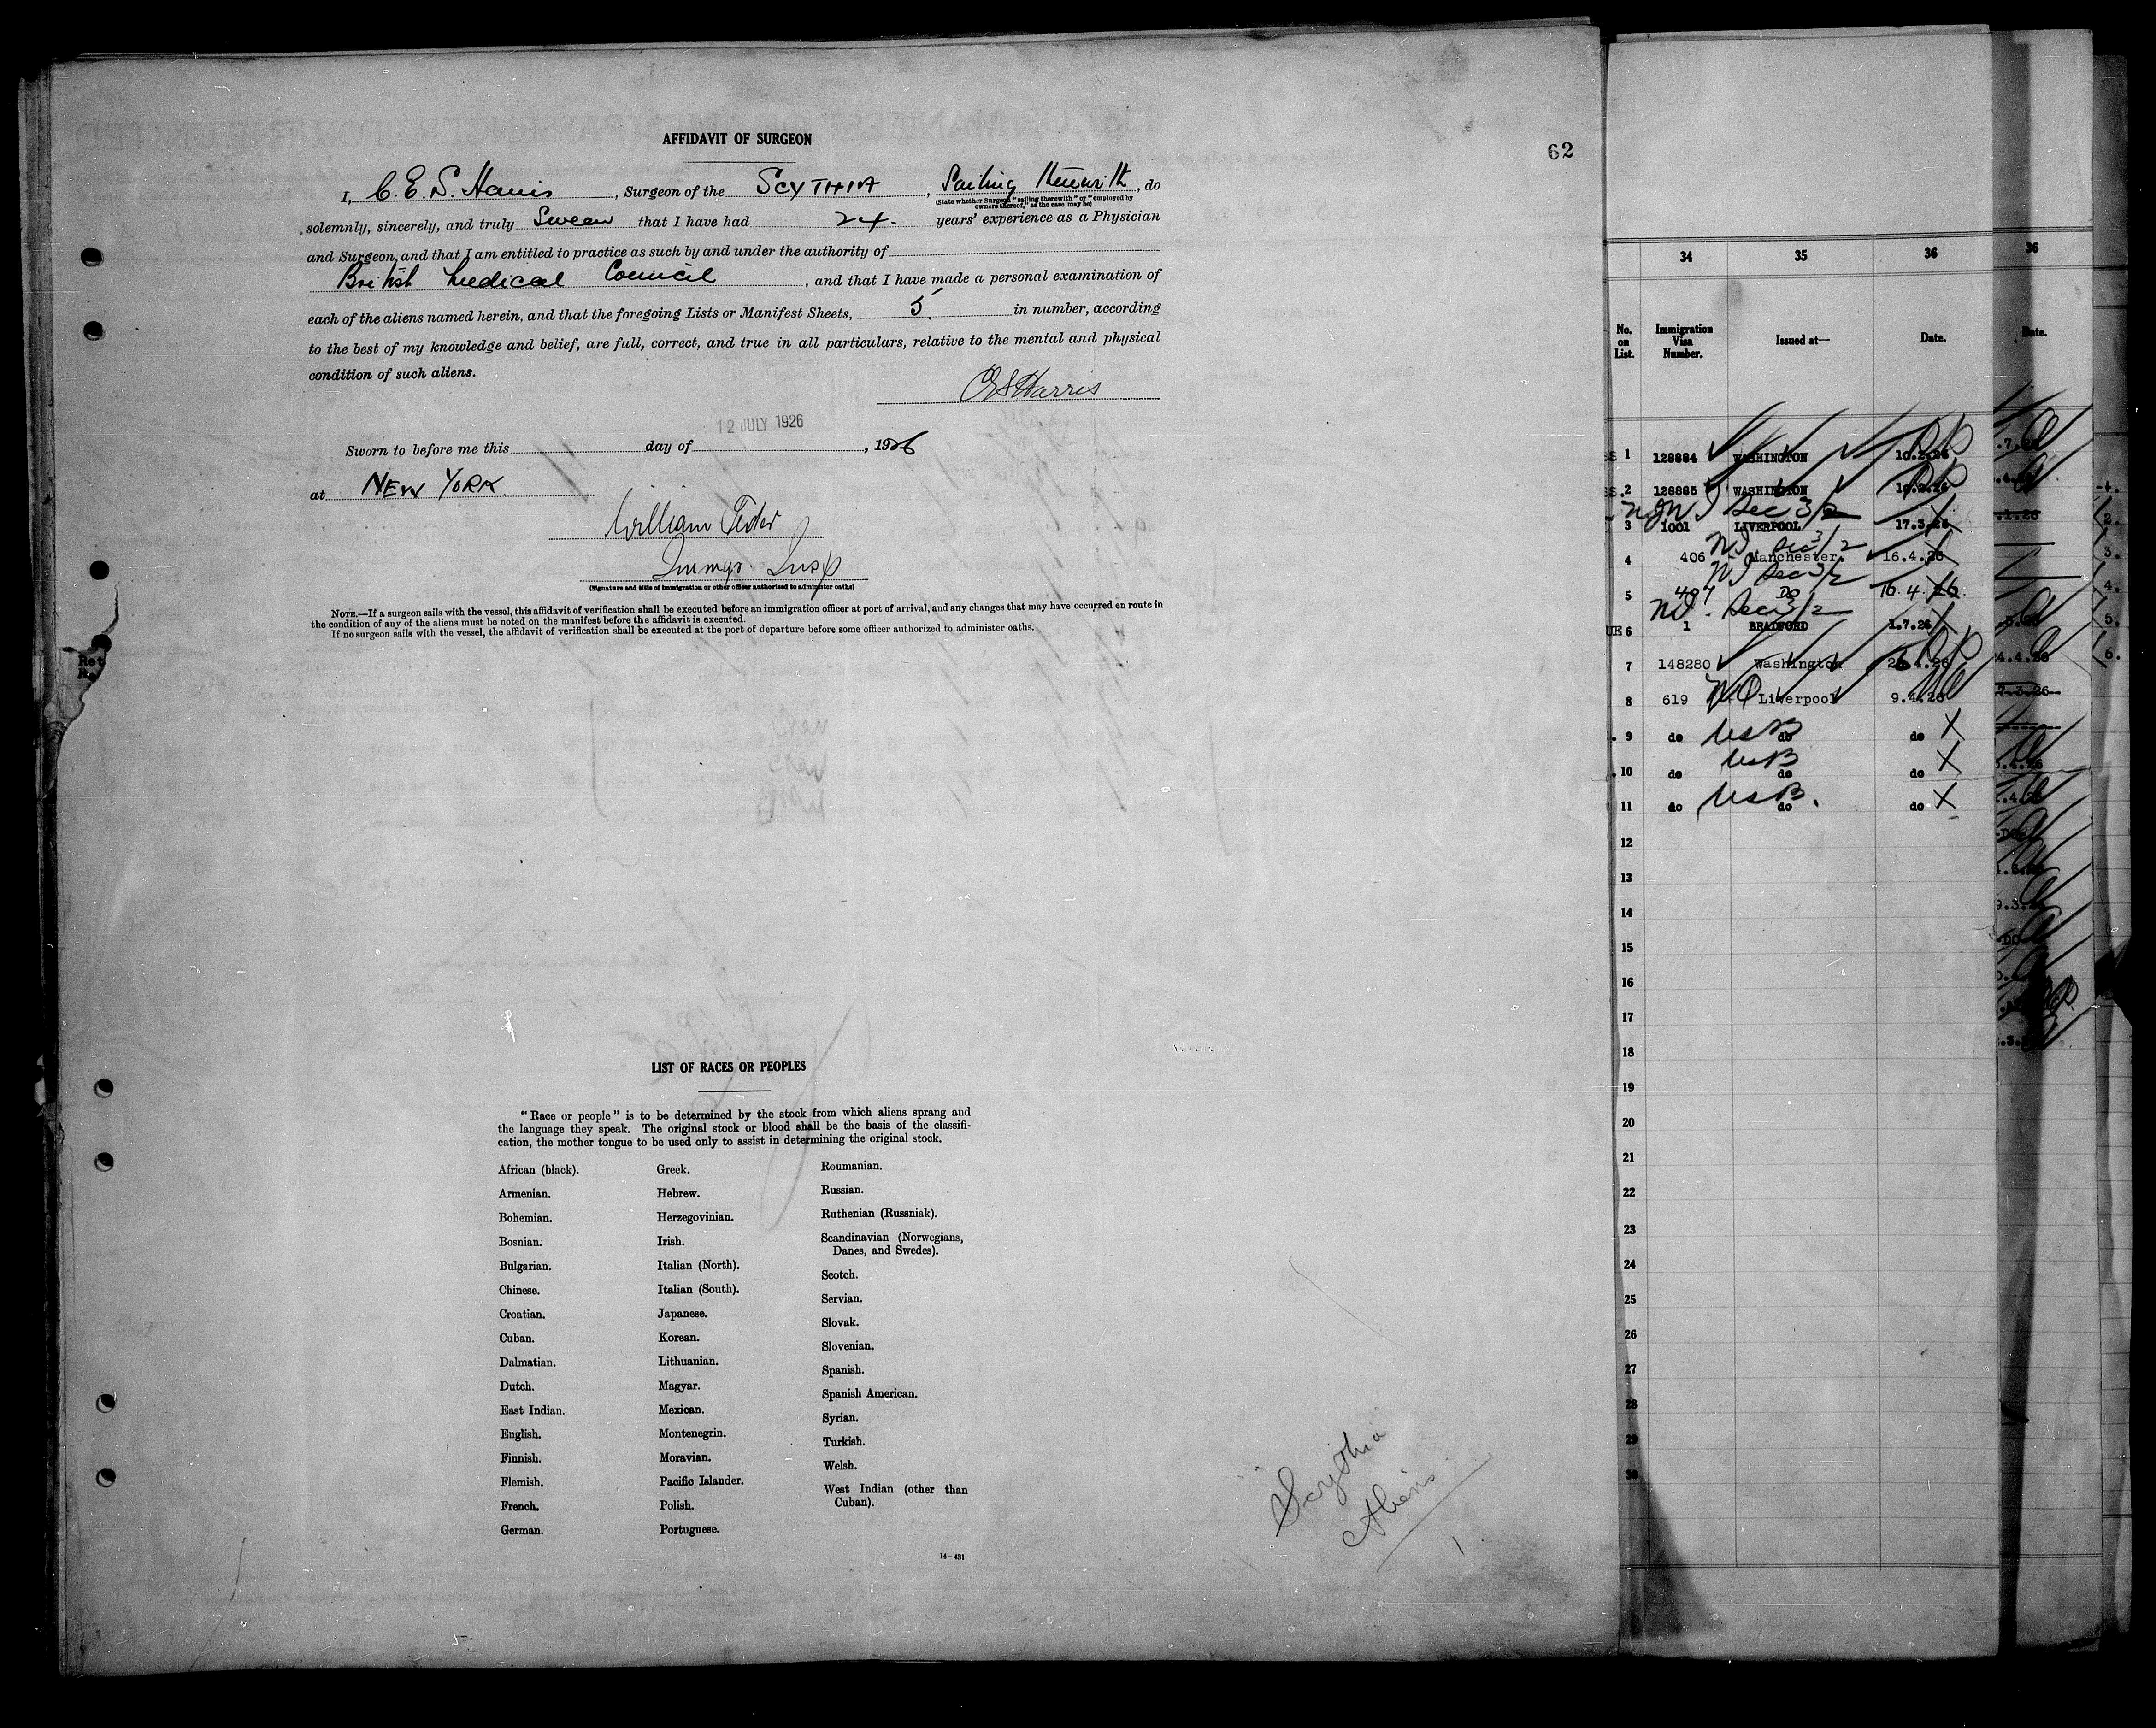 AFFIDAVIT OF SURGEON
62
I, C.E.S. Harris, Surgeon of the SCYTHIA, Sailing therewith, do
(State whether Surgeon "sailing therewith" or "employed by
owners thereof," as the case may be)
solemnly, sincerely, and truly Swear that I have had 24. years' experience as a Physician
and Surgeon, and that I am entitled to practice as such by and under the authority of
British Medical Council, and that I have made a personal examination of
each of the aliens named herein, and that the foregoing Lists or Manifest Sheets, 5. in number, according
to the best of my knowledge and belief, are full, correct, and true in all particulars, relative to the mental and physical
condition of such aliens.
CESHarris
12 JULY 1926
Sworn to before me this day of , 1926
at NEW YORK.
William
Immgr. Insp
(Signature and title of immigration or other officer authorized to administer oaths)
NOTE.—If a surgeon sails with the vessel, this affidavit of verification shall be executed before an immigration officer at port of arrival, and any changes that may have occurred en route in
the condition of any of the aliens must be noted on the manifest before the affidavit is executed.
If no surgeon sails with the vessel, the affidavit of verification shall be executed at the port of departure before some officer authorized to administer oaths.
LIST OF RACES OR PEOPLES
"Race or people" is to be determined by the stock from which aliens sprang and
the language they speak. The original stock or blood shall be the basis of the classifi-
cation, the mother tongue to be used only to assist in determining the original stock.
African (black).
Armenian.
Bohemian.
Bosnian.
Bulgarian.
Chinese.
Croatian.
Cuban.
Dalmatian.
Dutch.
East Indian.
English.
Finnish.
Flemish.
French.
German.
Greek.
Hebrew.
Herzegovinian.
Irish.
Italian (North).
Italian (South).
Japanese.
Korean.
Lithuanian.
Magyar.
Mexican.
Montenegrin.
Moravian.
Pacific Islander.
Polish.
Portuguese.
Roumanian.
Russian.
Ruthenian (Russniak).
Scandinavian (Norwegians,
Danes, and Swedes).
Scotch.
Servian.
Slovak.
Slovenian.
Spanish.
Spanish American.
Syrian.
Turkish.
Welsh.
West Indian (other than
Cuban).
14-431
Scythia
Aliens
34 35 36
No.
on
List.
Immigration
Visa
Number.
Issued at—
Date.
1 128884 WASHINGTON 10.2.26
2 128885 WASHINGTON 10.2.26
NI Sec 3/2
3 1001 LIVERPOOL 17.3.26
NI Sec 3/2
4 406 Manchester 16.4.26
NI Sec 3/2
5 407 DO 16.4.26
NI. Sec 3/2
6 1 BRADFORD 1.7.26
7 148280 Washington 26.4.26 RP
8 619 NQ Liverpool 9.4.26
9 do USB do do X
10 do USB do do X
11 do USB. do do X
12
13
14
15
16
17
18
19
20
21
22
23
24
25
26
27
28
29
30
36
Date.
2.
3.
4.
5.
6.